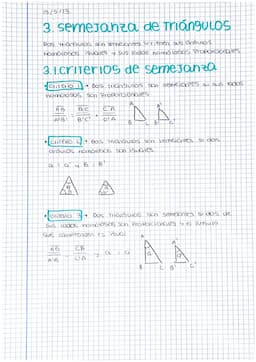 3. semejanza de triángulos
Dos triángulos son semejantes si tienen sus ángulos
homólogos iguales y sus lados homólogos proporcionales
3.1.criterios de semejanza
• criterio 1 → Dos triángulos son semejantes si sus lados
homólogos son proporcionales
AB/A'B' = BC/B'C' = CA/C'A'
A A'
B C B' C'
• criterio 2 → Dos triángulos son semejantes si dos
ángulos homólogos son iguales
• criterio 3 → Dos triángulos son semejantes si dos de
sus lados homólogos son proporcionales y el ángulo
que comprenden es igual
A A'
B C B' C'